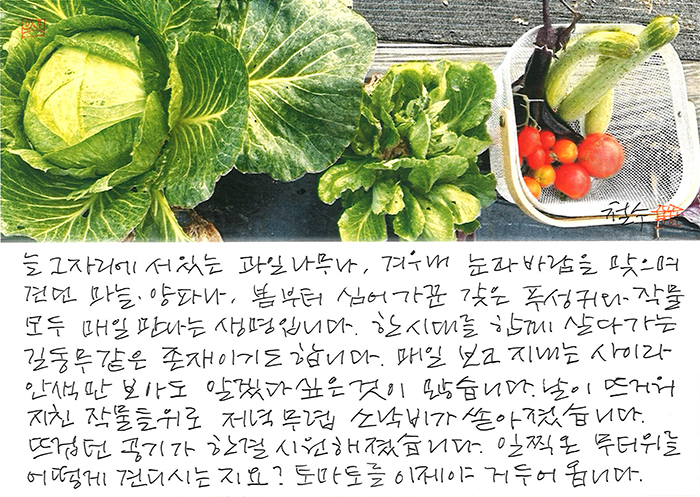 철수
늘 그자리에 서있는 과일나무나, 겨우내 눈과바람을 맞으며
견딘 마늘·양파나, 봄부터 심어가꾼 갖은 푸성귀와 작물
모두 매일 만나는 생명입니다. 한시대를 함께 살다가는
길동무같은 존재이기도 합니다. 매일 보고 지내는 사이라
안색만 보아도 알겠다 싶은것이 많습니다. 날이 뜨거워
지친 작물들위로 저녁무렵 소낙비가 쏟아졌습니다.
뜨겁던 공기가 한결 시원해졌습니다. 일찍온 무더위를
어떻게 견디시는지요? 토마토를 이제야 거두어 옵니다.